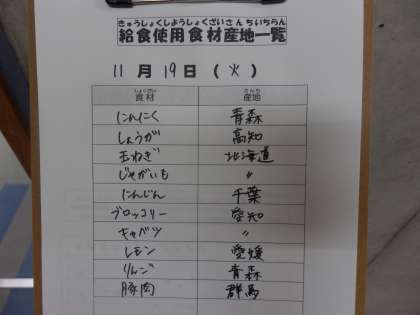 きゅうしょくしようしょくざいさんちいちらん
給食使用食材産地一覧
11月19日(火)
しょくざい さんち
食材 産地
にんにく 青森
しょうが 高知
玉ねぎ 北海道
じゃがいも 〃
にんじん 千葉
ブロッコリー 愛知
キャベツ 〃
レモン 愛媛
りんご 青森
豚肉 群馬